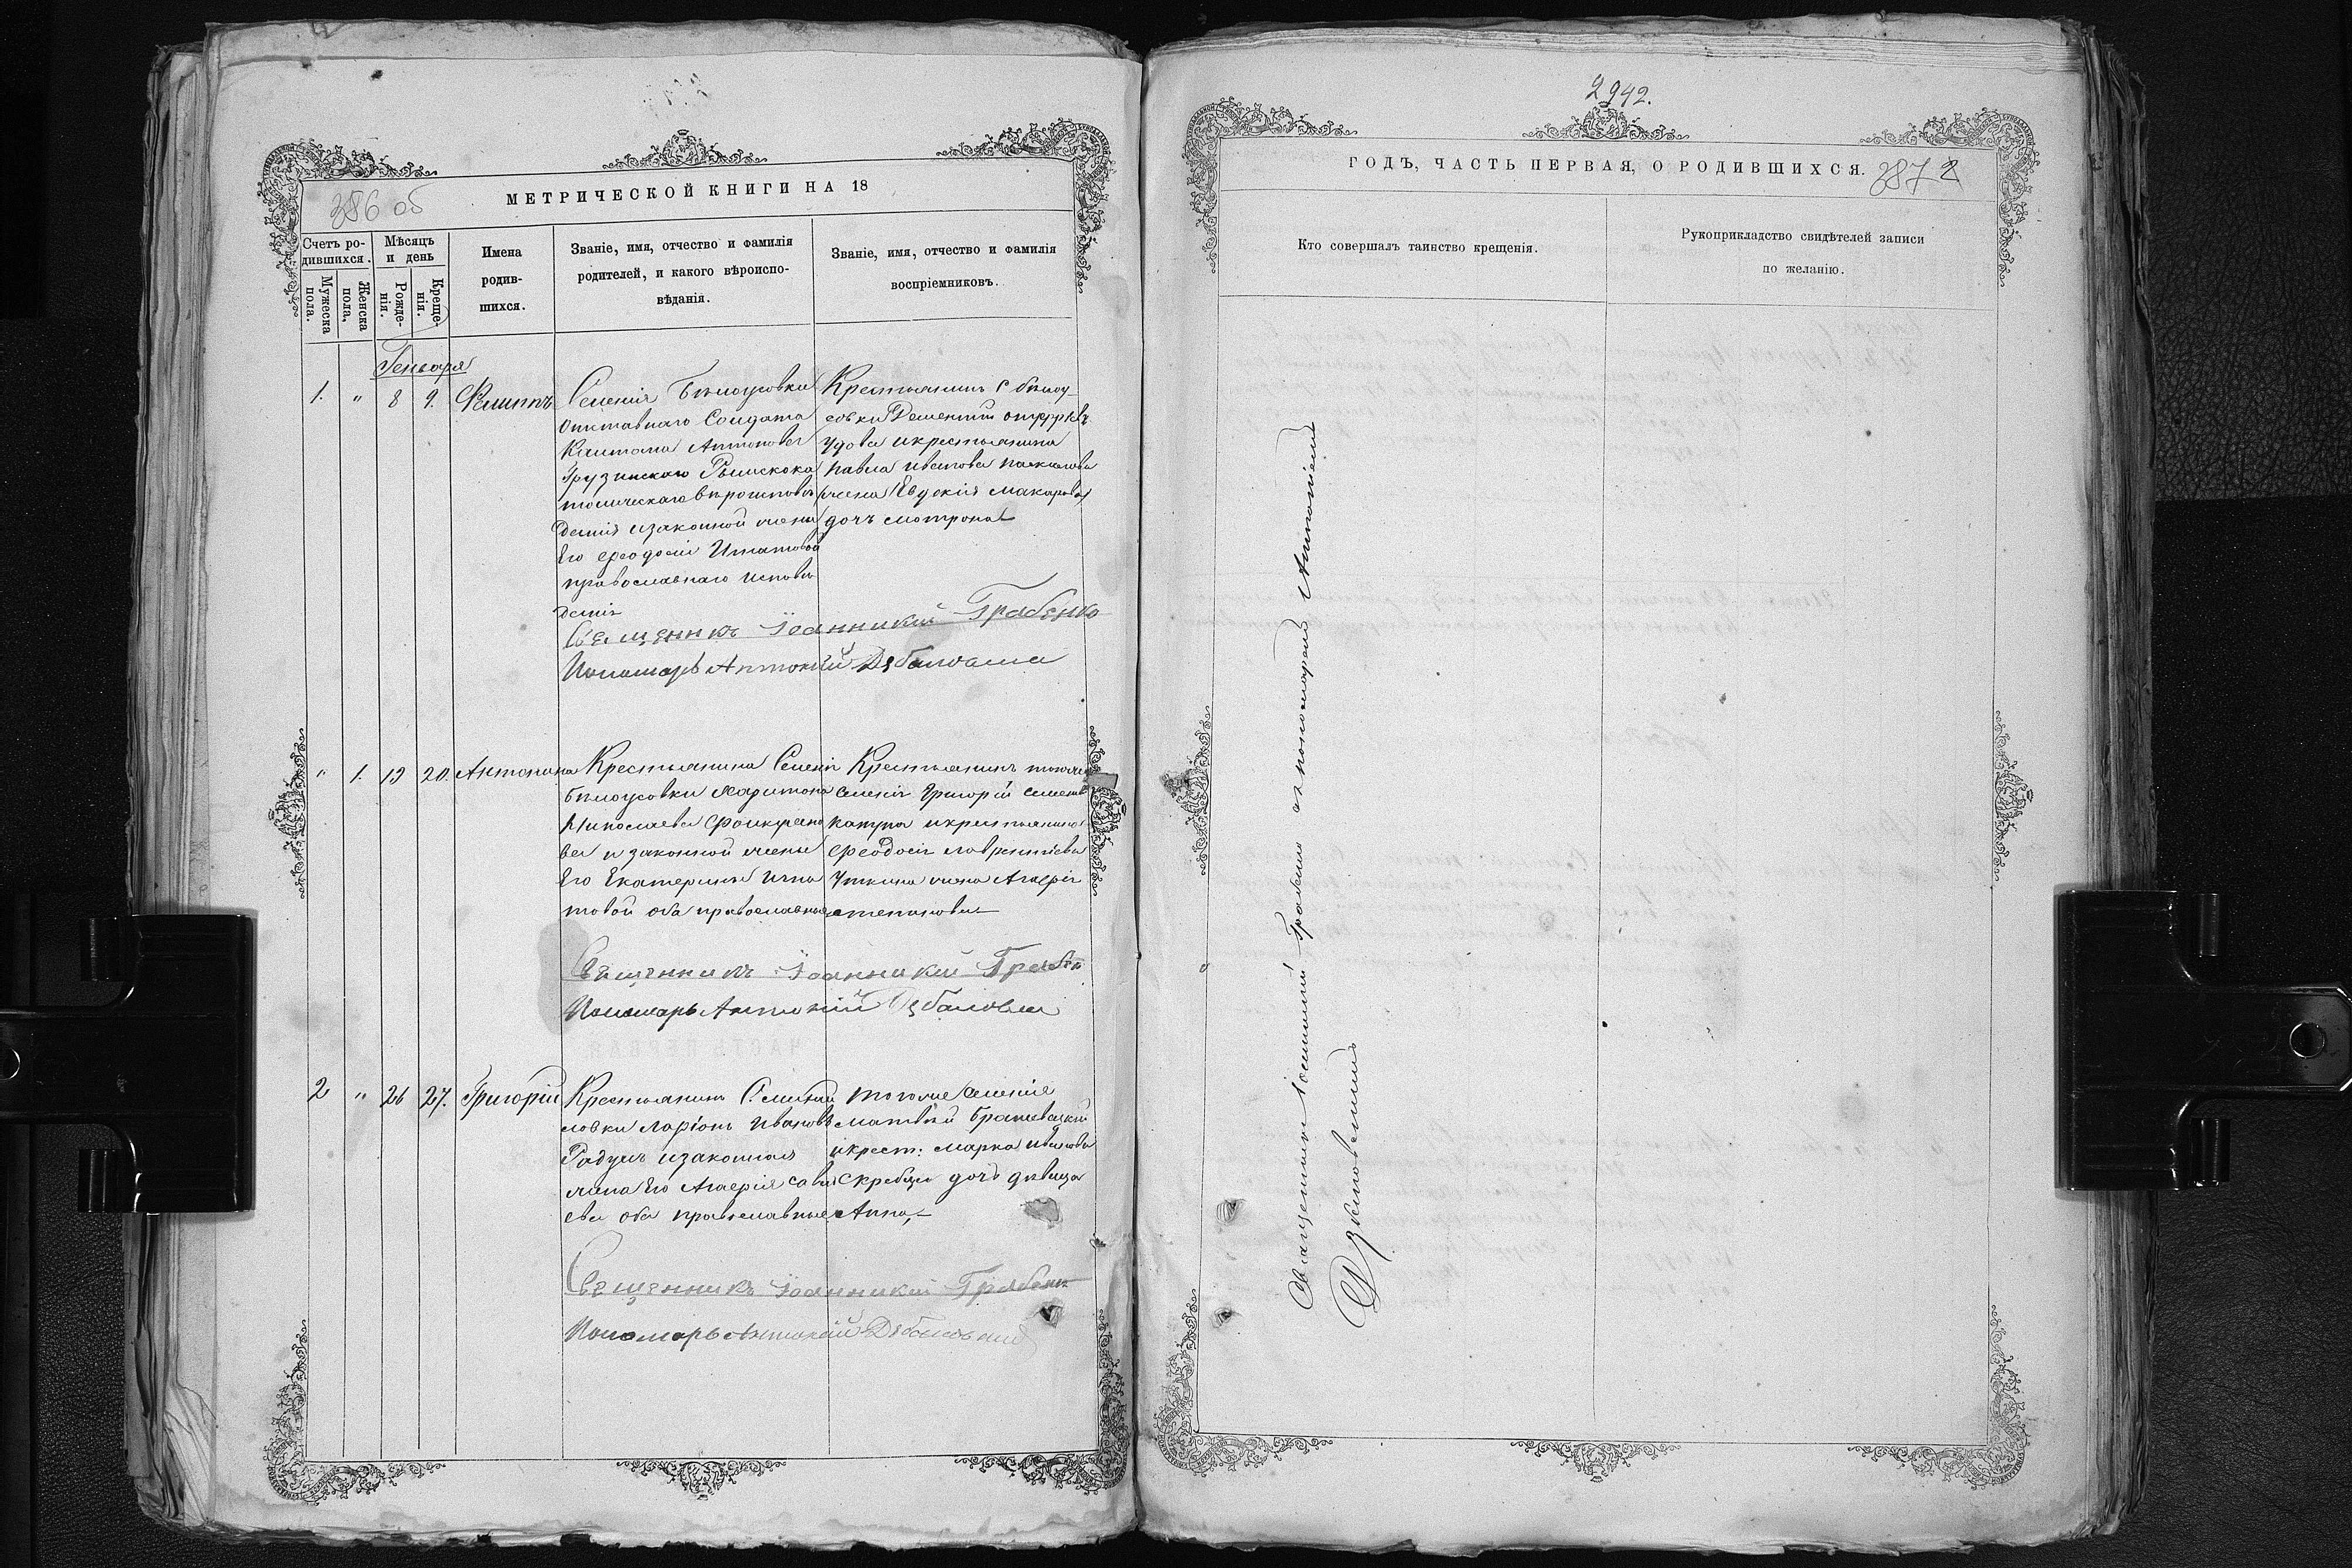 386 об
МЕТРИЧЕСКОЙ КНИГИ НА 18
Счетъ ро-
дившихся.
Мужеска
пола.
Женска
пола.
Мѣсяцъ
и день
Рожде-
нія.
Креще-
нія.
Имена
родив-
шихся.
Званіе, имя, отчество и фамилія
родителей, и какого вѣроиспо-
вѣданія.
Званіе, имя, отчество и фамилія
воспріемниковъ.
Генваря
1. " 8 9. Филиппъ
Селенія Бѣлоусовки
отставнаго Солдата
Антонова
Грузинскаго
изаконной жены
Его Феодосіи Игнатовой
православнаго исповѣ
данія
Крестьянинъ с бѣлоу
совки Дементій
удова икрестьянина
павла иванова
жена Евдокія макарова
дочь мотрона
Священникъ Іоанникій Грабенко
Пономарь Антоній Дзбановскій
" 1. 19 20. Антонина
Крестьянина Селенія
бѣлоусовки харитона
Николаева
ва и законной жены
Его Екатерины Игна
товой оба православные
Крестьянинъ тогоже
Селенія Григорій семеновъ
катуна икрестьянина
Феодосія лаврентіева
жена Агафія
степанова
Священникъ Іоанникій Грабен
Пономарь Антоній Дзбановскій
2 " 26 27. Григорій
Крестьянинъ Селенія
ловки ларіонъ Ивановъ
Радулъ изаконная
жена Его Агафія сав
ева оба православные
тогоже Селенія
матвѣй
икрест: марка иванова
дочь дѣвица
Анна,
Священникъ Іоанникій Грабенк
Пономарь Антоній Дзбановскій
2942.
ГОДЪ, ЧАСТЬ ПЕРВАЯ, О РОДИВШИХСЯ.
387 2
Кто совершалъ таинство крещенія.
Рукоприкладство свидѣтелей записи
по желанію.
Священникъ Іоанникій Грабенко спономаремъ Антоніемъ
Дзбановскимъ